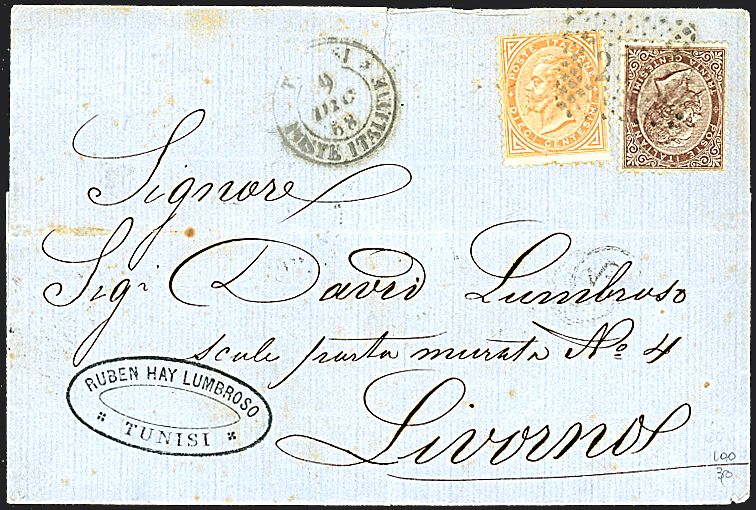 9
DIC
68
POSTE ITALIANE
POSTE ITALIANE
DIECI CENTESIMI
POSTE ITALIANE
TRENTA CENTESIMI
Signore
Sigr David Lumbroso
scale porta murata No 4
Livorno
RUBEN HAY LUMBROSO
TUNISI
100
30